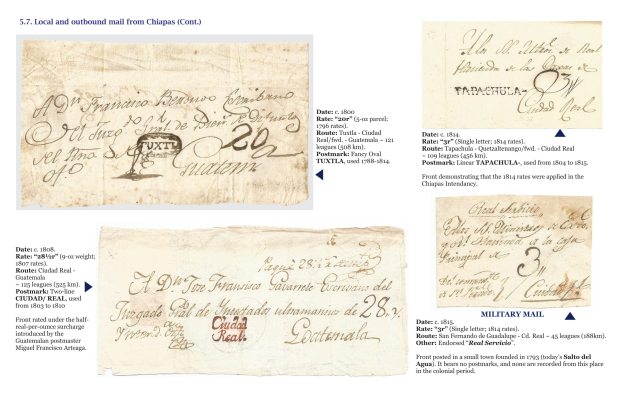 5.7. Local and outbound mail from Chiapas (Cont.)
A Dn. Francisco
TUXTLA
20
Date: c. 1800
Rate: “20r” (5-oz parcel;
1796 rates).
Route: Tuxtla - Ciudad
Real/fwd. - Guatemala ~ 121
leagues (508 km).
Postmark: Fancy Oval
TUXTLA, used 1788-1814.
de Real
Hacienda de
TAPACHULA-
3
Ciudad Real
Date: c. 1814.
Rate: “3r” (Single letter; 1814 rates).
Route: Tapachula - Quetzaltenango/fwd. - Ciudad Real
~ 109 leagues (456 km).
Postmark: Linear TAPACHULA-, used from 1804 to 1815.
Front demonstrating that the 1814 rates were applied in the
Chiapas Intendancy.
Date: c. 1808.
Rate: “28½r” (9-oz weight;
1807 rates).
Route: Ciudad Real -
Guatemala
~ 125 leagues (525 km).
Postmark: Two-line
CIUDAD/ REAL, used
from 1803 to 1810
Front rated under the half-
real-per-ounce surcharge
introduced by the
Guatemalan postmaster
Miguel Francisco Arteaga.
A Dn. Jose Francisco Gavarrete Escribano del
Juzgado Rál de ultramarino de 28.
Ciudad
Real.
Goatemala
Real Servicio
3
MILITARY MAIL
Date: c. 1815.
Rate: “3r” (Single letter; 1814 rates).
Route: San Fernando de Guadalupe - Cd. Real ~ 45 leagues (188km).
Other: Endorsed “Real Servicio”.
Front posted in a small town founded in 1793 (today’s Salto del
Agua). It bears no postmarks, and none are recorded from this place
in the colonial period.